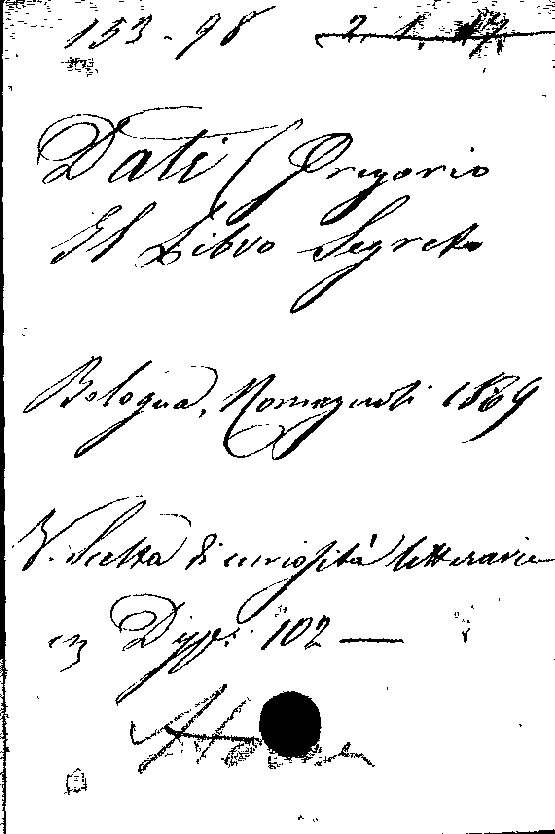 153-98 2. 1. 47
Dati (Gregorio
Il Libro Segreto
Bologna, Romagnoli 1869
V. Scelta di curiosità letterarie
Disp. 102 —